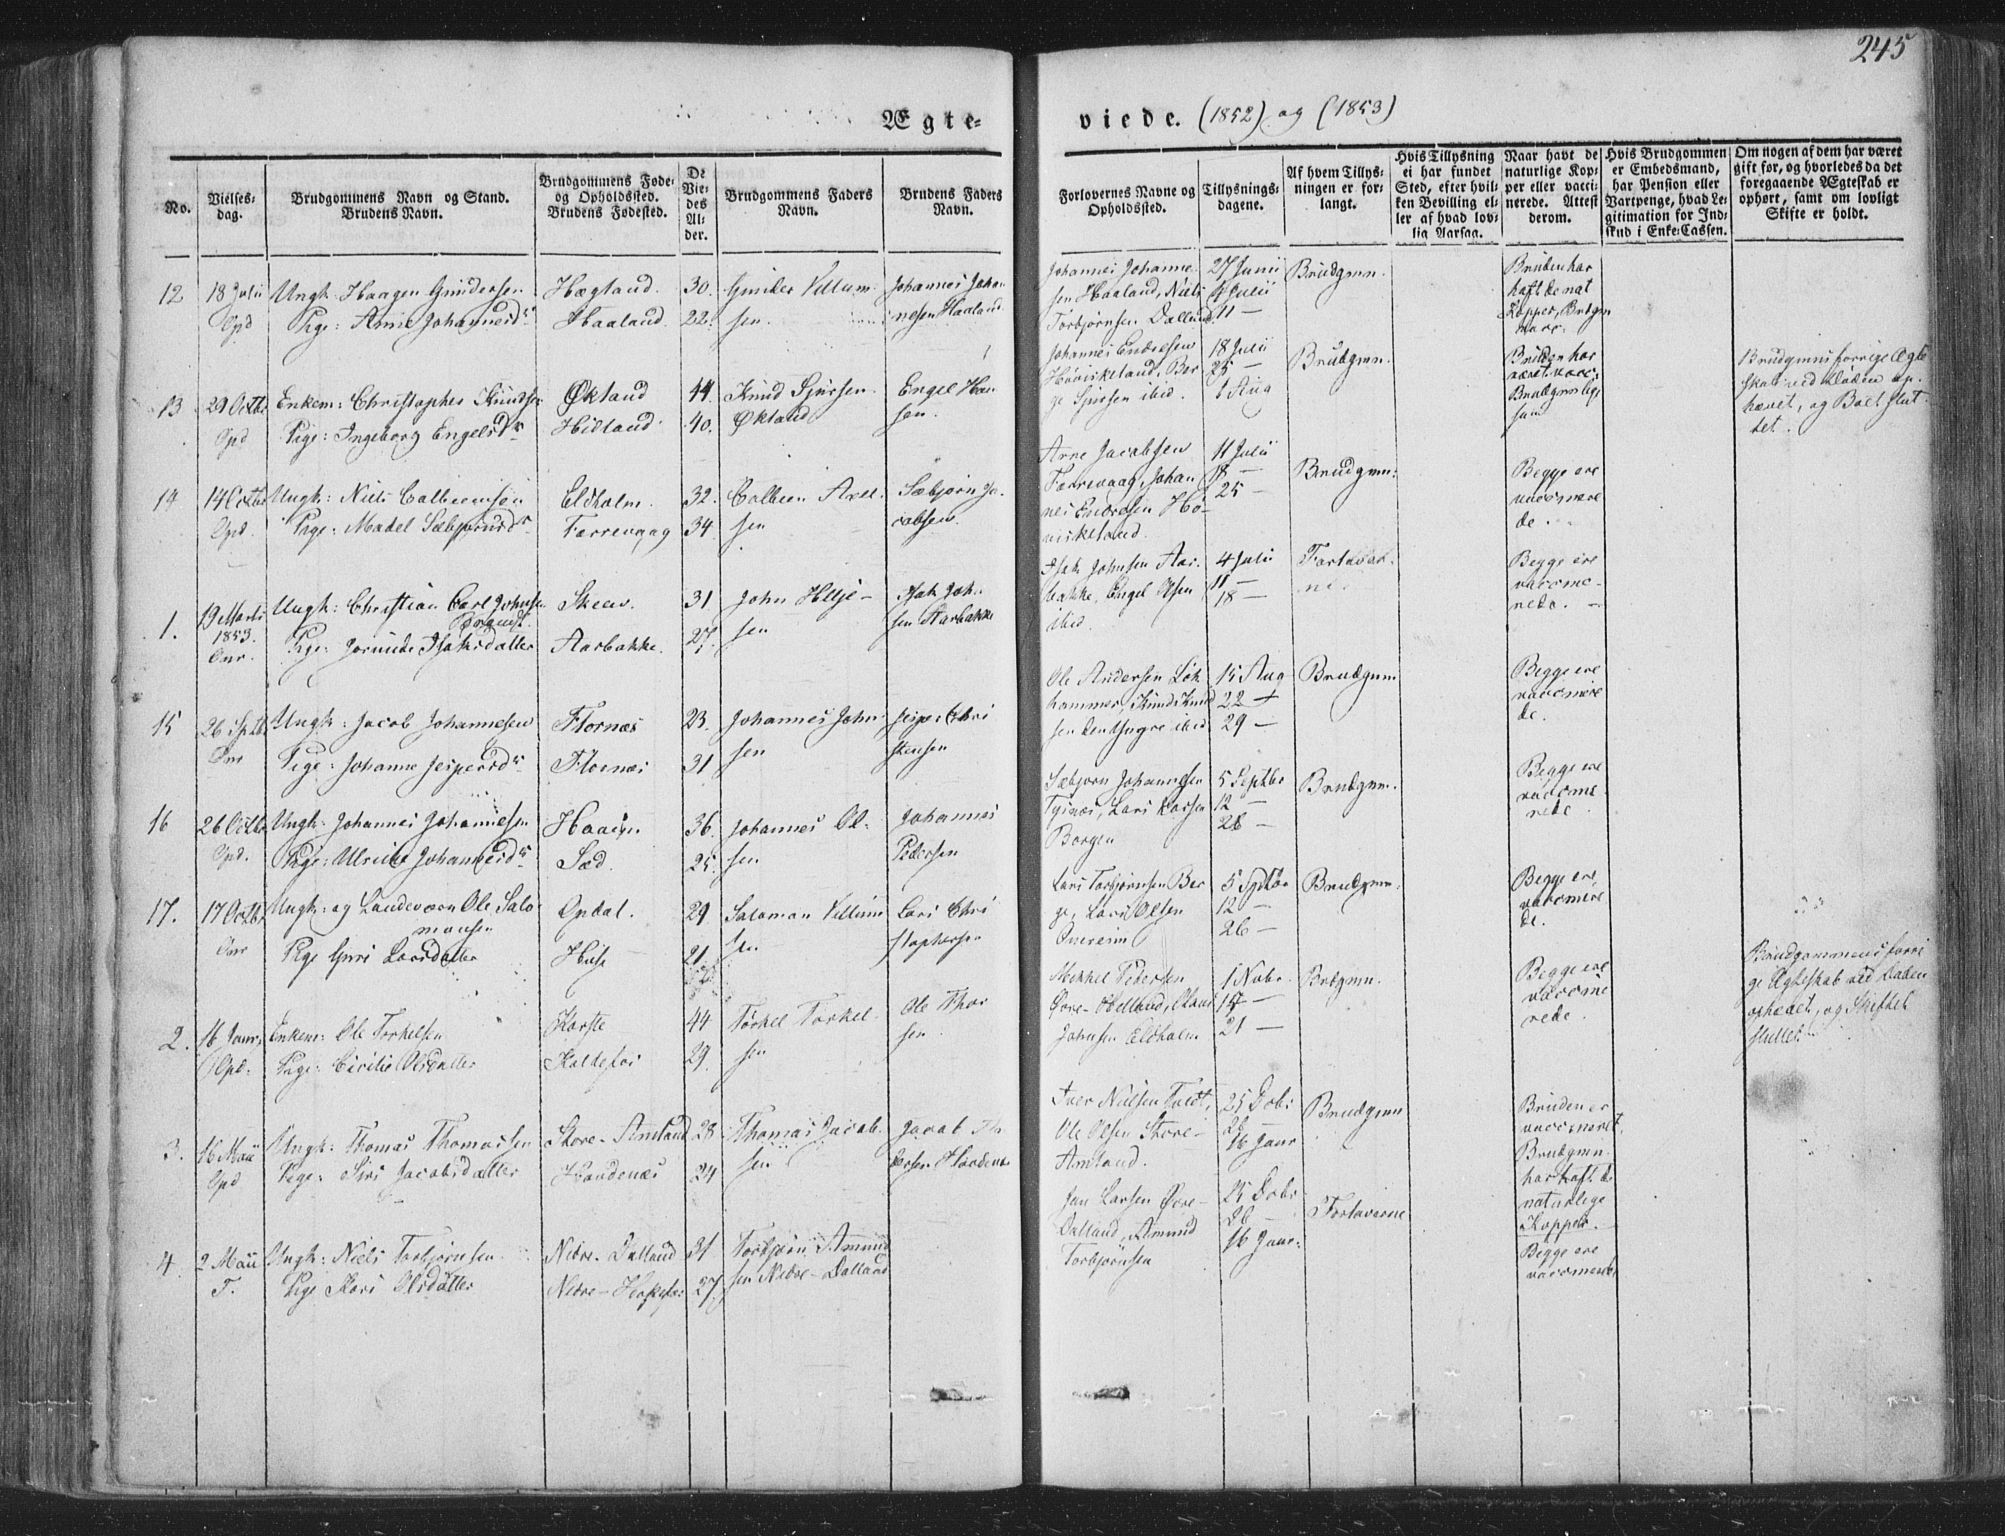 245
Ægte-
viede. (1852) og (1853)
No.
Vielses-
dag.
Brudgommens Navn og Stand.
Brudens Navn.
Brudgommens Føde-
og Opholdssted.
Brudens Fødested.
De
Vie-
des
Al-
der.
Brudgommens Faders
Navn.
Brudens Faders
Navn.
Forlovernes Navne og
Opholdssted.
Tillysnings-
dagene.
Af hvem Tillys-
ningen er for-
langt.
Hvis Tillysning
ei har fundet
Sted, efter hvil-
ken Bevilling el-
ler af hvad lov-
lig Aarsag.
Naar havt de
naturlige Kop-
per eller vacci-
nerede. Attest
derom.
Hvis Brudgommen
er Embedsmand,
har Pension eller
Vartpenge, hvad Le-
gitimation for Ind-
skud i Enke-Cassen.
Om nogen af dem har været
gift før, og hvorledes da det
foregaaende Ægteskab er
ophørt, samt om lovligt
Skifte er holdt.
12
18 Julii
Opd
Ungk: Haagen Gundersen
Pige: Anne Johannesdr
Hægland
Haaland
30.
22.
Gunder Villum-
sen.
Johannes Johan
nesen Haaland
Johannes Johanne-
sen Haaland, Niels
Torbjørnsen Dalland
27 Junii
4 Julii
11 —
Brudgmn.
Bruden har
haft de nat
Kopper, Brdgm
vacc.
13
29 Octbr
Opd
Enkem: Christopher Knudsen
Pige: Ingeborg Engelsdr
Økland
Hidland
44.
40.
Knud Sjursen
Økland
Engel Han
sen.
Johannes Endresen
Høviskeland, Ber
ge Sjursen ibid.
18 Julii
25 —
1 Aug
Brudgmn.
Bruden har
været vacc.
Brudgmn lige
saa
Brudgmns forrige Ægte
skab ved Døden op-
hævet, og Boet slut
tet.
14
14 Octbr
Opd.
Ungk: Niels Colbeensøn
Pige: Madel Sæbjørnsdr
Eldholm.
Færrevaag
32.
34
Colbeen Arne
sen
Sæbjørn Ja-
cobsen.
Arne Jacobsen
Færrevaag, Johan
nes Endresen Hø-
viskeland.
11 Julii
18 —
25 —
Brudgmn:
Begge ere
vaccinere
de.
1.
19 Marts
1853.
Onr.
Ungk: Christian Carl Johnsen
Pige: Jorunde Isaksdatter
Skeen.
Aarbakke.
31
27.
John Hilje-
sen
Isak John
sen Aarbakke
Isak Johnsen Aar-
bakke, Engel Olsen
ibid.
4 Julii
11 —
18 —
Forlover-
ne
Begge ere
vaccine-
rede. —
15
26 Sptbr
Onr
Ungk: Jacob Johannesen
Pige: Johanne Jespersdr
Flornæs
Flornæs
23.
31
Johannes John
sen
Jesper Chri
stensen
Ole Andersen Løk
hammer, Knud Knud
sen den Yngre ibid
15 Aug
22 —
29 —
Brudgmn
Begge ere
vaccinere
de.
16
26 Octbr
Opd.
Ungk: Johannes Johannesen
Pige: Ulrike Johannesdr
Haagen
Sæd
36.
25.
Johannes Ol-
sen
Johannes
Pedersen
Sæbjørn Johannesen
Tysnæs, Lars Larsen
Borgen
5 Septbr
12 —
26 —
Brudgmn.
Begge ere
vaccine
rede
17.
17 Octbr
Onr
Ungk: og Landeværn Ole Salo
monsen
Pige Guri Larsdatter
Opdal.
Huse
29
21
Salamon Villum
sen
Lars Chri
stophersen
Lars Torbjørnsen Ber
ge, Lars Olsen
Onereim
5 Sptbr
12 —
26 —
Brudgmn.
Begge ere
vaccinere
de.
2.
16 Janr.
Opd.
Enkem: Ole Torkelsen
Pige: Cicilie Olsdatter
Korste
Koldefos
44
29.
Torkel Torkel-
sen
Ole Thor
sen
Mikkel Pedersen
Øvre-Helland, Claus
Johnsen Eldholm
1 Nobr.
15 —
21 —
Brdgmn.
Begge ere
vaccine
rede
Brudgommens forri
ge Ægteskab ved Døden
ophævet, og Skiftet
sluttet.
3.
16 Maii
Opd
Ungk: Thomas Thomassen
Pige: Siri Jacobsdatter
Store-Amland
Haadenæs
28
24
Thomas Jacob-
sen
Jacob
Haadenæs
Iver Nielsen Tvedt,
Ole Olsen Store-
Amland.
25 Dobr
26
16 Janr
Brudgmn
Bruden er
vaccineret,
Brudgmn
har haft de
naturlige
Kopper.
4.
2 Maii
T.
Ungk: Niels Torbjørnsen
Pige Kari Olsdatter
Nedre-Dalland
31
27
Torbjørn Amund
sen Nedre-Dalland
Jan Larsen Øvre-
Dalland, Amund
Torbjørnsen
25 Dobr
26 —
16 Janr.
Forloverne
Begge ere
vaccinerede